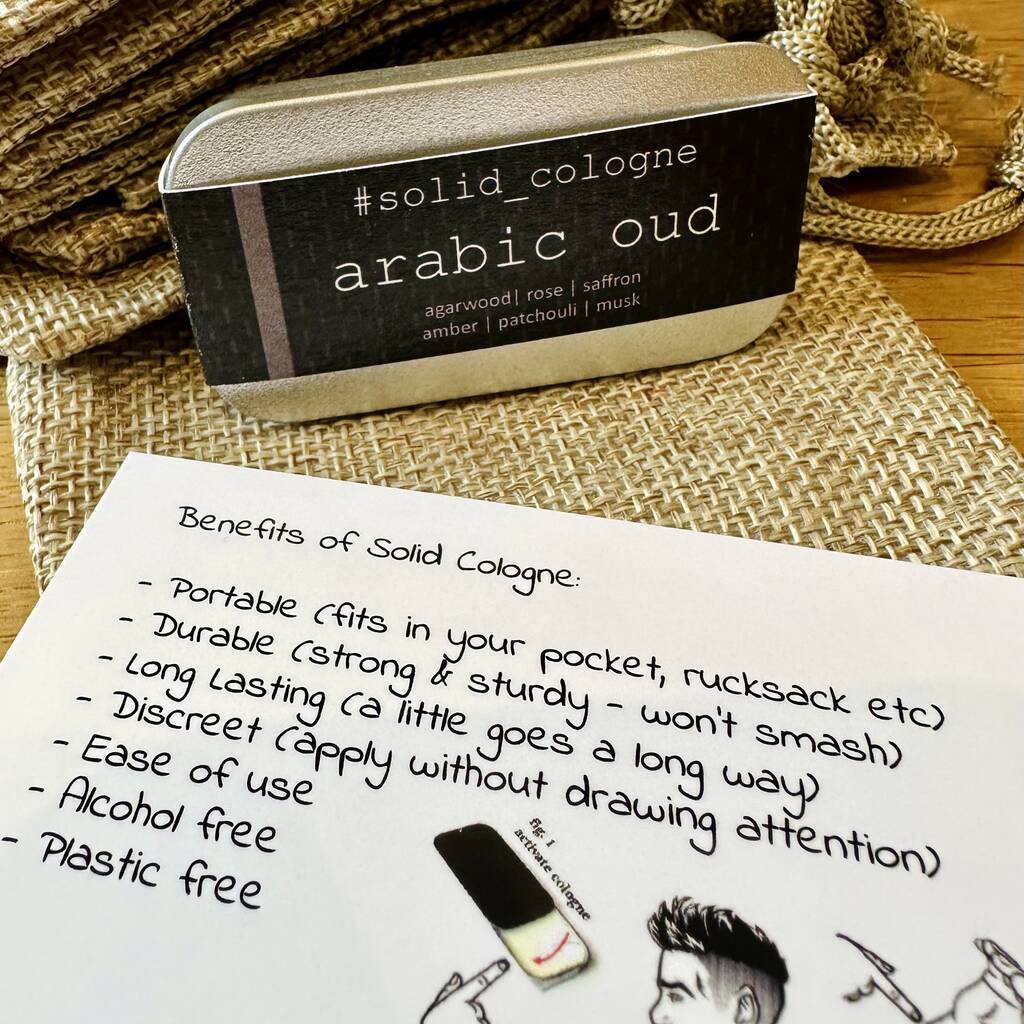 #solid_cologne
arabic oud
agarwood| rose | saffron
amber | patchouli | musk
Benefits of Solid Cologne:
- Portable (fits in your pocket, rucksack etc)
- Durable (strong & sturdy - won't smash)
- Long Lasting (a little goes a long way)
- Discreet (apply without drawing attention)
- Ease of use
- Alcohol free
- Plastic free
fig. 1
activate cologne